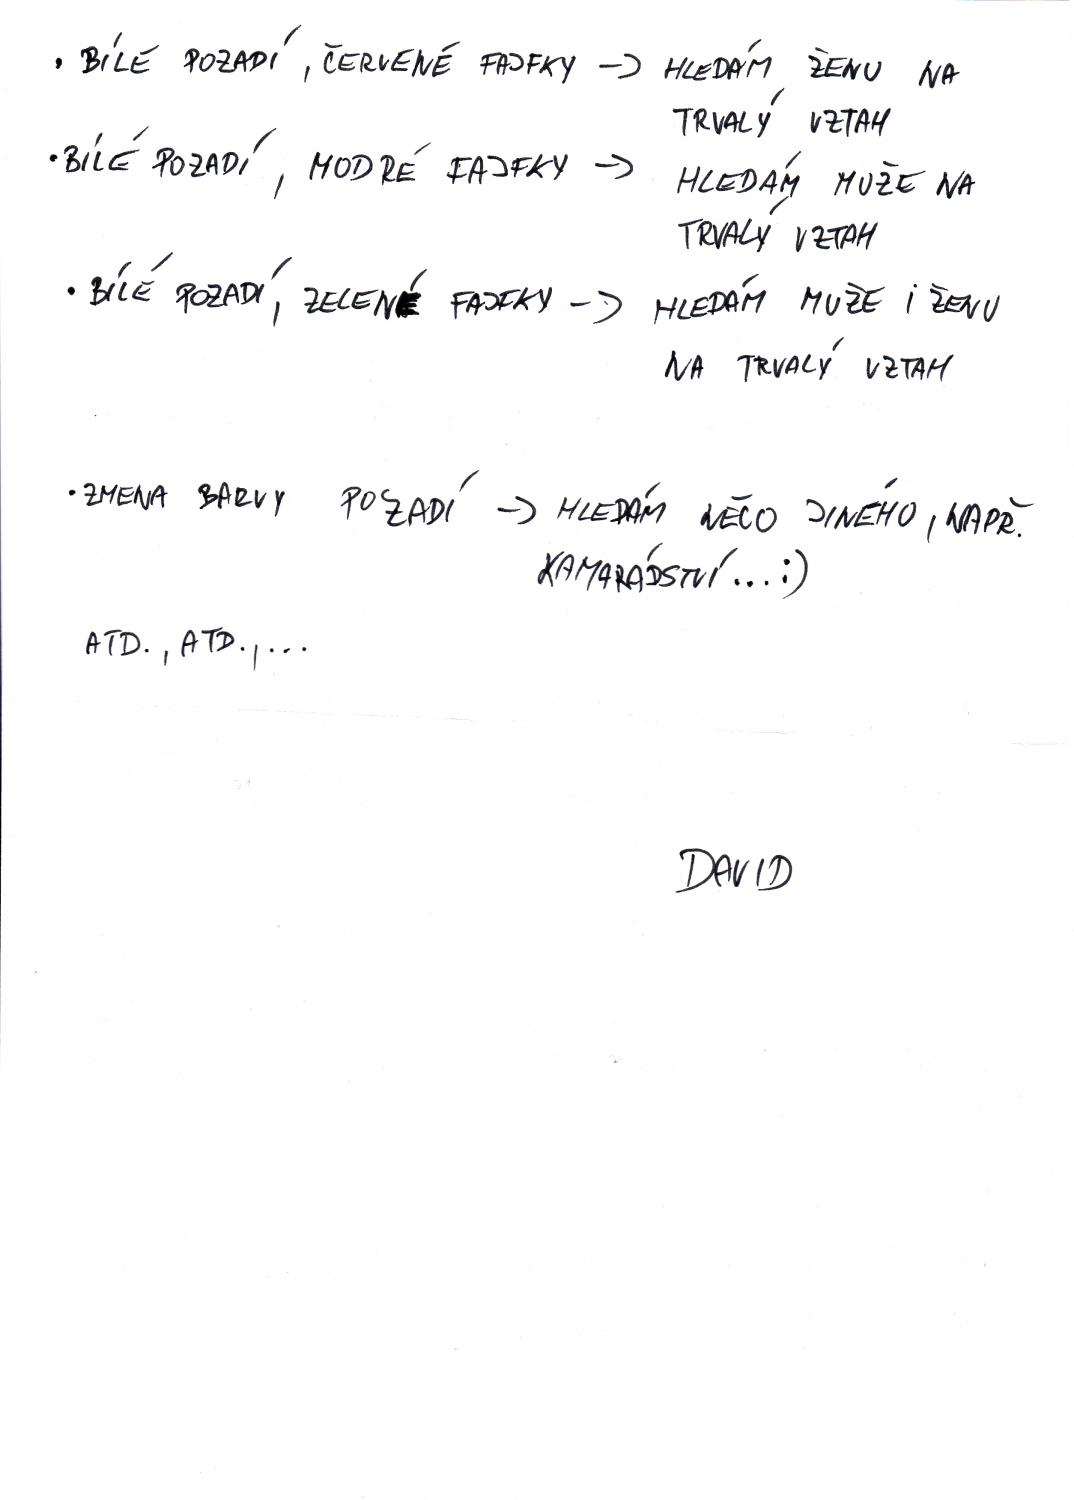 • BÍLÉ POZADÍ, ČERVENÉ FAJFKY -> HLEDÁM ŽENU NA
TRVALÝ VZTAH
• BÍLÉ POZADÍ, MODRÉ FAJFKY -> HLEDÁM MUŽE NA
TRVALÝ VZTAH
• BÍLÉ POZADÍ, ZELENÉ FAJFKY -> HLEDÁM MUŽE I ŽENU
NA TRVALÝ VZTAH
• ZMENA BARVY POZADÍ -> HLEDÁM NĚČO JINÉHO, NAPŘ.
KAMARÁDSTVÍ...:)
ATD., ATD.,...
DAVID